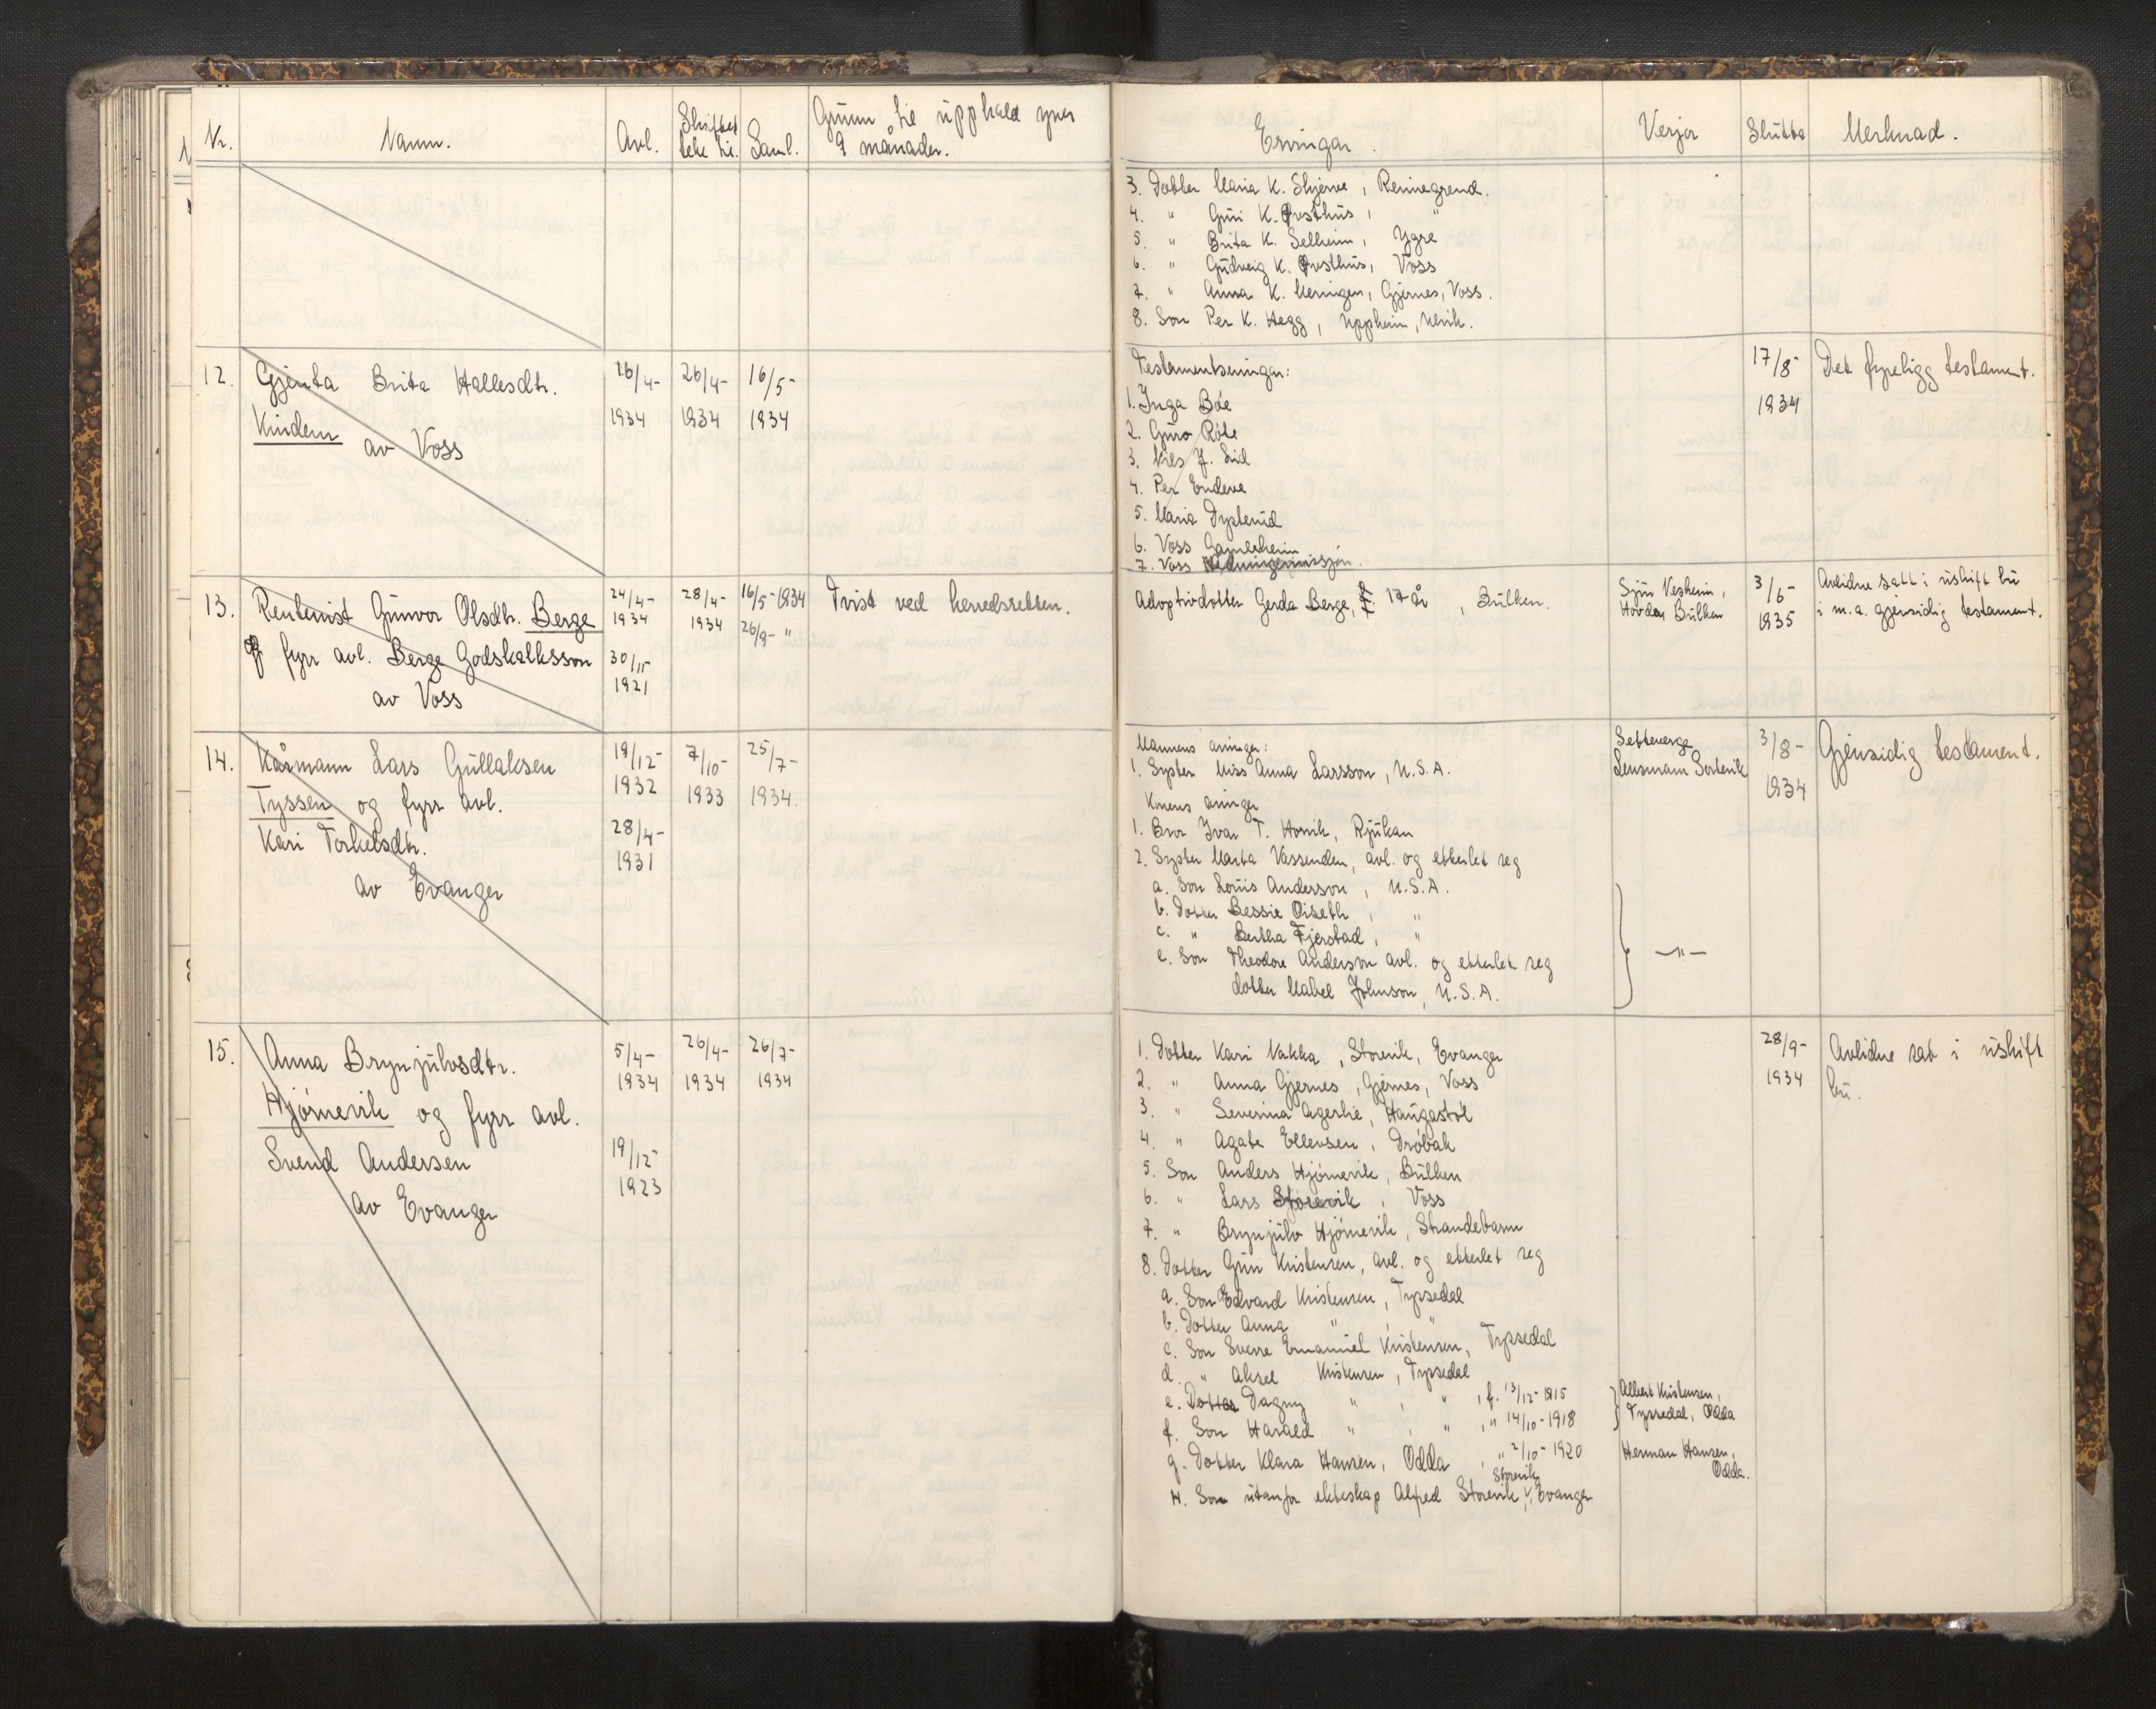 Nr. Namn. Avl. Skiftet teke til. Saml. Grunn til upphald yver 9 månader. Ervingar. Verjor Slutta Merknad.
3. Dotter Maria K. Skjerve, Rennegrend.
4. " Guri K. Presthus, "
5. " Brita K. Selheim, Ygre
6. " Gudveig K. Presthus, Voss
7. " Anna K. Meringen, Gjernes, Voss.
8. Son Per K. Hegg, Uppheim, Ulvik.
12. Gjenta Brita Hallesdtr.
Kindem av Voss
16/4- 1934
26/4- 1934
16/5- 1934
Testamentservingar:
1. Inga Bøe
2. Guro Røte
3. Nils J. Lid
4. Per Endeve
5. Maria Dysterud
6. Voss Gamleheim
7. Voss
17/8- 1934
Det fyreligg testament.
13. Rentenist Gunvor Olsdtr. Berge
og fyrr avl. Berge Godskalksson
av Voss
24/4- 1934
30/11 1921
28/4- 1934
16/5- 1934
26/9- "
Tvist ved herredsretten.
Adoptivdotter Gerda Berge, 17 år, Bulken.
Sjur Vesheim,
Hovda, Bulken
3/6- 1935
Avlidne satt i uskift bu
i m.a. gjensidig testament.
14. Kårmann Lars Gullaksen
Tyssen og fyrr avl.
Kari Torkelsdtr.
av Evanger
19/12- 1932
28/4- 1931
7/10- 1933
25/7- 1934.
Mannens arvinger:
1. Syster Miss Anna Larsson, U.S.A.
Konens arvinger
1. Bror Ivar T. Horvik, Rjukan
2. Syster Marta Vassenden, avl. og etterlet seg
a. Son Louis Anderson, U.S.A.
b. Dotter Bessie Oiseth, "
c. " Bertha Fjerstad, "
e. Son Theodore Anderson avl. og etterlet seg
dotter Mabel Johnson, U.S.A.
Setteverge
Lensmann Sortevik
—"—
3/8- 1934
Gjensidig testament.
15. Anna Brynjulvsdtr.
Hjørnevik og fyrr avl.
Svend Andersen
av Evanger
5/4- 1934
19/12- 1923
26/4- 1934
26/7- 1934
1. Dotter Kari Nakka, Storevik, Evanger
2. " Anna Gjernes, Gjernes, Voss
3. " Severina Agerlie, Haugastøl
4. " Agate Ellevsen, Drøbak
5. Son Anders Hjørnevik, Bulken
6. " Lars Storevik, Voss
7. " Brynjulv Hjørnevik, Strandebarm
8. Dotter Guri Kristensen, avl. og etterlet seg
a. Son Edvard Kristensen, Tyssedal
b. Dotter Anna " , "
c. Son Sverre Emanuel Kristensen, Tyssedal
d. " Aksel Kristensen, Tyssedal
e. Dotter Dagny " , " , f. 13/12-1915
f. Son Harald " , " , " 14/10-1918
g. Dotter Klara Hansen, Odda , " 2/10-1920
H. Son utanfor ekteskap Alfred Storevik, Storevik, Evanger
Albert Kristensen,
Tyssedal, Odda
Herman Hansen,
Odda.
28/9- 1934
Avlidne sat i uskift
bu.